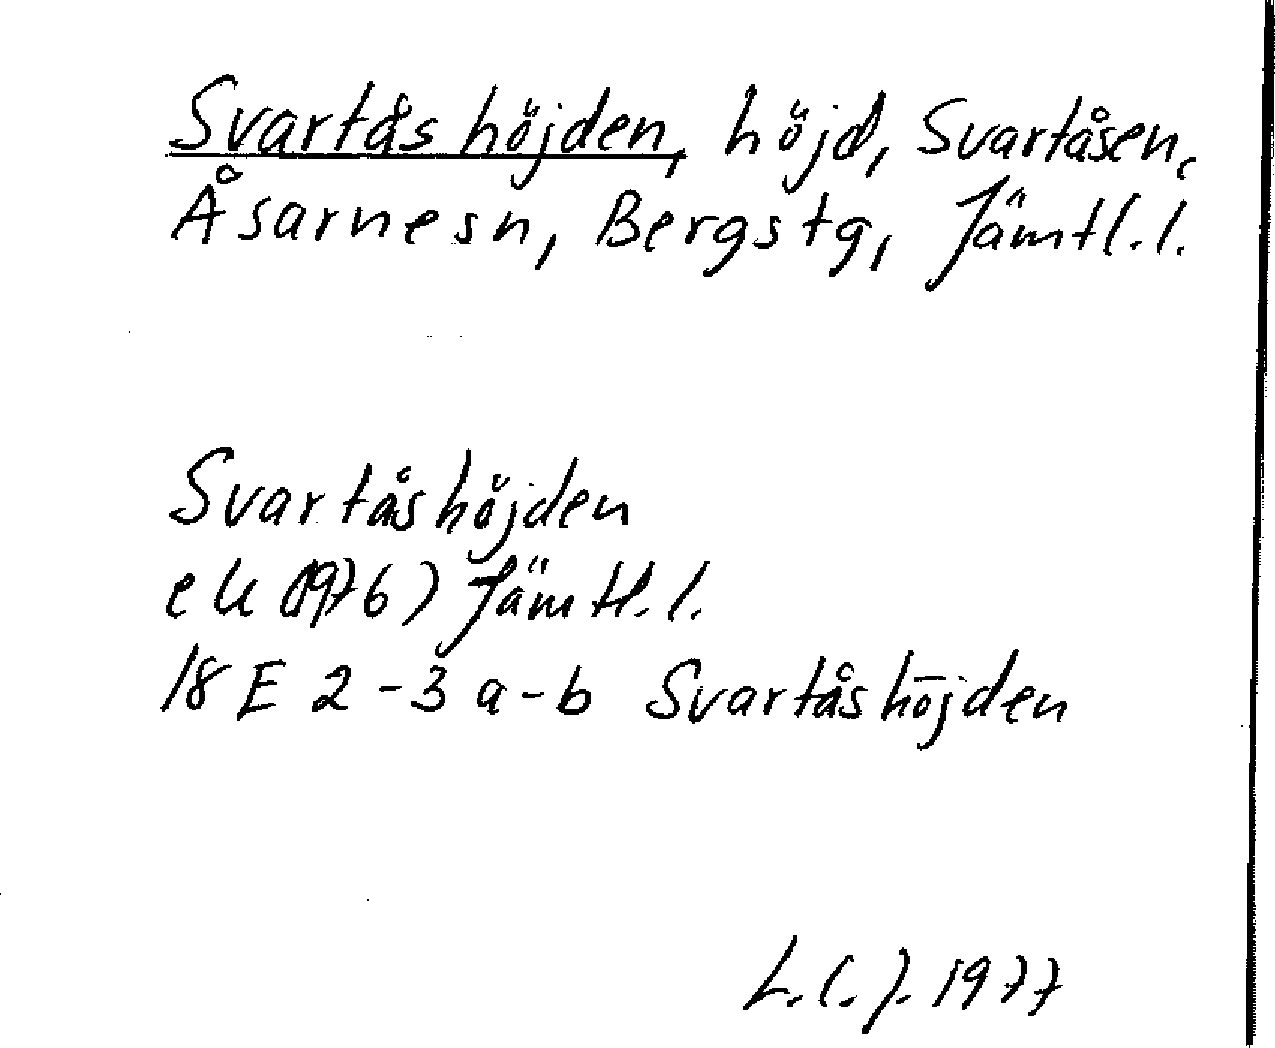 Svartåshöjden, höjd, Svartåsen,
Åsarnesn, Bergstg, Jämtl.l.
Svartåshöjden
ek (1976) Jämtl.l.
18 E 2-3 a-b Svartåshöjden
L.C.J. 1977